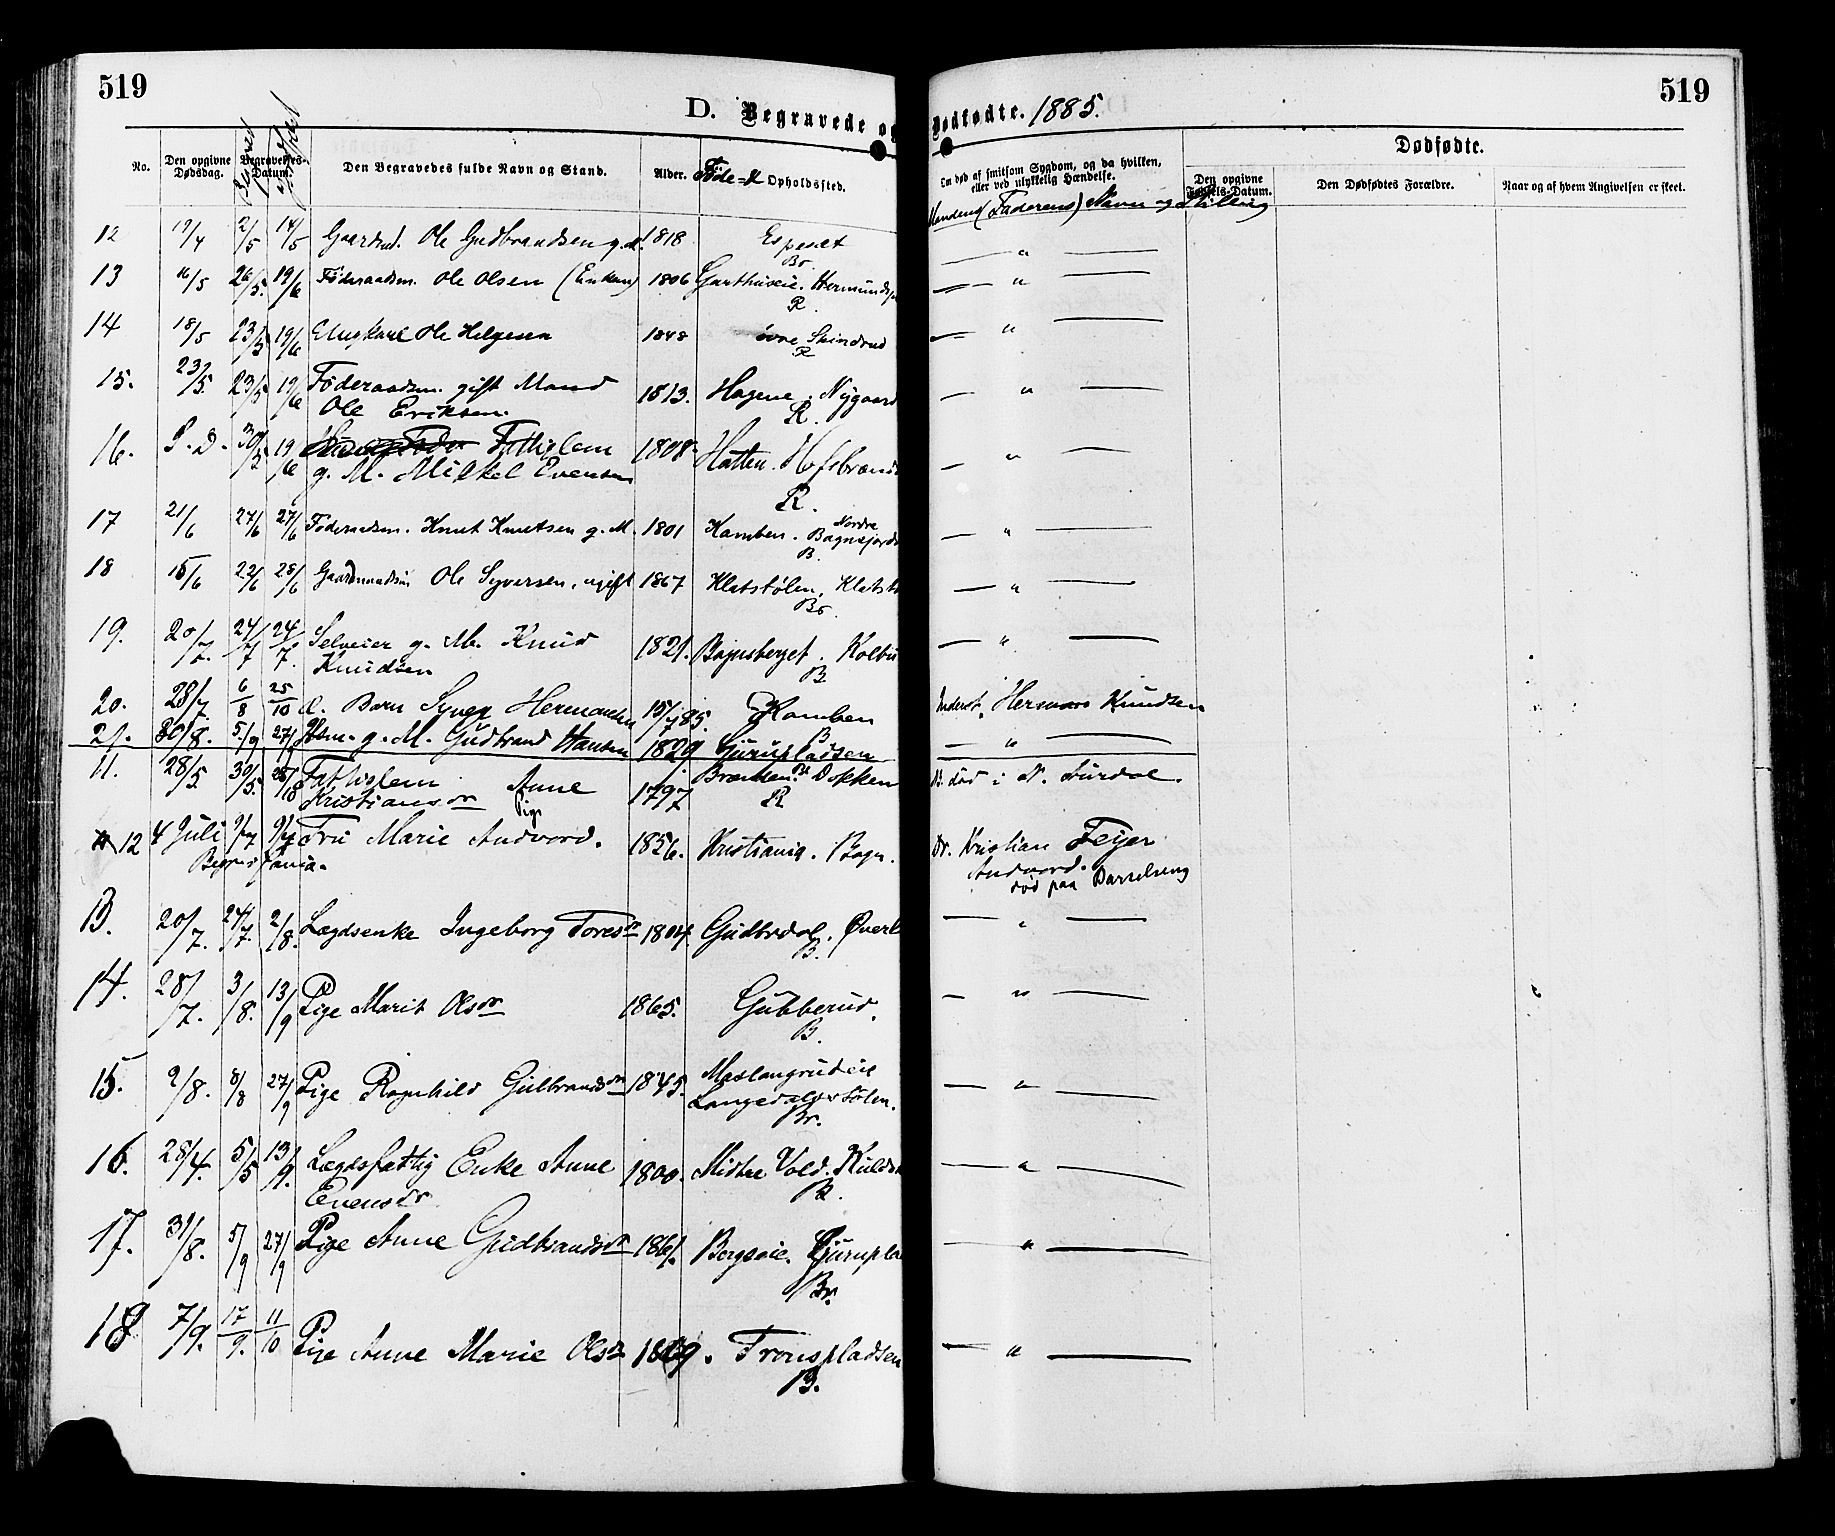 519
519
D. Begravede og Dødfødte. 1885.
No.
Den opgivne Dødsdag.
Begravelses-Datum.
Den Begravedes fulde Navn og Stand.
Alder.
Føde- & Opholdssted.
Om død af smitsom Sygdom, og da hvilken, eller ved ulykkelig Hændelse.
Mandens (Faderens) Navn og Stilling
Dødfødte.
Den opgivne Fødsels-Datum.
Den Dødfødtes Forældre.
Naar og af hvem Angivelsen er skeet.
12 19/4 2/5 14/5 Gaardmd. Ole Gudbrandsen g. M. 1818 Espeset — " —
Br.
13 16/5 26/5. 19/6 Føderaadsm. Ole Olsen (Enkem) 1806 Garthuseie. — " —
R.
14 18/5 23/5 19/6 Ungkarl Ole Helgesen 1848 øvre Skindrud — " —
R
15. 23/5. 23/5 19/6 Føderaadsm. gift Mand 1813. Hagene. Nygaard — " —
Ole Eriksen. R.
16. S. D. 30/5 19/6 Fattiglem 1808 Hatten. — " —
g. M. Mikkel Evensen
R.
17 21/6 27/6 27/6 Føderaadsm. Knut Knutsen g. M. 1801 Kamben. Nordre — " —
B.
18 15/6 22/6 28/6 Ole Syversen, ugift 1867 Klatstølen, — " —
Br
19. 20/7. 24/7 24/7. Selveier g. M. Knud 1821. Bagnsberget. — " —
Knudsen B
20. 28/7. 6/8 25/10 d. Barn Syver Hermansen 15/7 85. Kamben Inderst. Herman Knudsen
B
21. 30/8. 5/9 27/9 Hsm. g. M. Gudbrand Hansen 1829 Gjurupladsen — " —
Br
11. 28/5 30/5. Fattiglem Anne 1797 Brænden. Dokken død i N. Aurdal.
Kristiansdr R
12 4 Juli 9/7 9/7 Fru Marie Andvord. 1856. Kristiania. Bagn. Dr. Kristian Feyer
Andvord.
død paa Barselseng
13. 20/7. 24/7. 2/8. Lægdsenke Ingeborg Toresdr 1804 Gudbrdal. — " —
B.
14. 28/7. 3/8. 13/9 Pige Marit Olsdr 1865. Gubberud. — " —
B.
15. 2/8. 8/8 27/9 Pige Ragnhild Gulbrandsdr 1845. Maslangrudeie — " —
Langedalsstølen.
Br.
16. 28/4. 5/5 13/9. Lægdsfattig Enke Anne 1800. Midtre Vold. — " —
Evensdr B.
17. 31/8. 5/9 27/9 Pige Anne Gudbrandsdr 1861. Bergseie. — " —
Br.
18 7/9. 17/9. 11/10 Pige Anne Marie Olsdr Fronspladsen — " —
B.